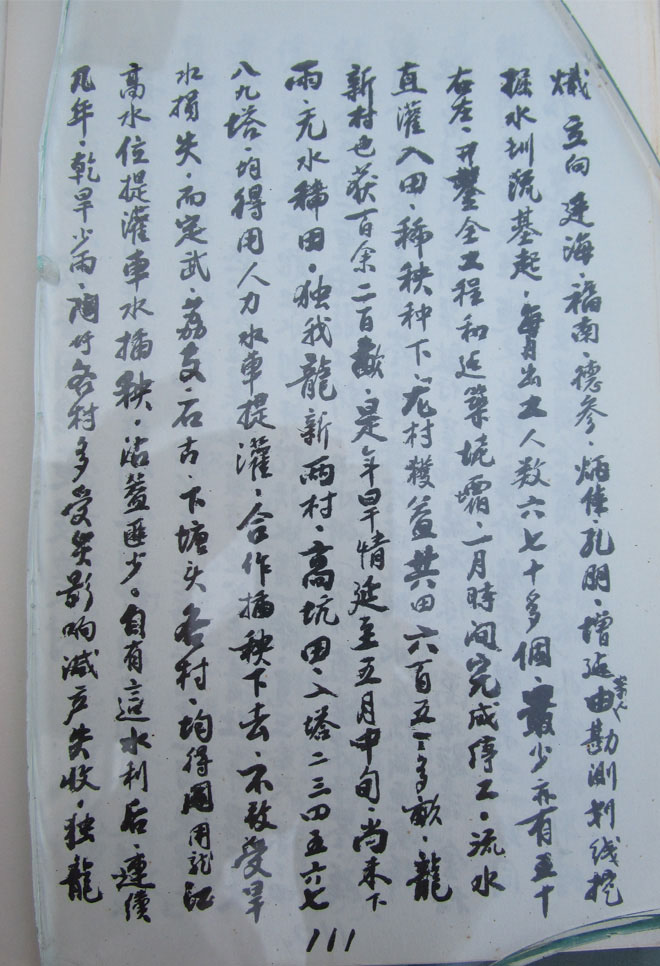 炽、立向、廷海、福南、德参、炳佳、孔朋、增延等人由勘測划线挖
掘水圳疏基起，每日出工人数六七十多個，最少亦有五十
右左，开鑿全工程和延築坡壩，一月時间完成停工，流水
直灌入田，稀秧种下，尨村獲益共田六百五十多畝，龍
新村也获百余二百畝，是年旱情延至五月中旬，尚未下
雨，无水稀田，独我龍新两村，高坑田，入塔二三四五六七
八九塔，均得用人力水車提灌，合作插秧下去，不致受旱
水損失，而定武、荔支、石古、下塘头各村，均得用龙江
高水位提灌車水插秧，沾益匪少。自有這水利后，連續
几年，乾旱少雨，周竹各村多受災影响减产失收，独龍
111